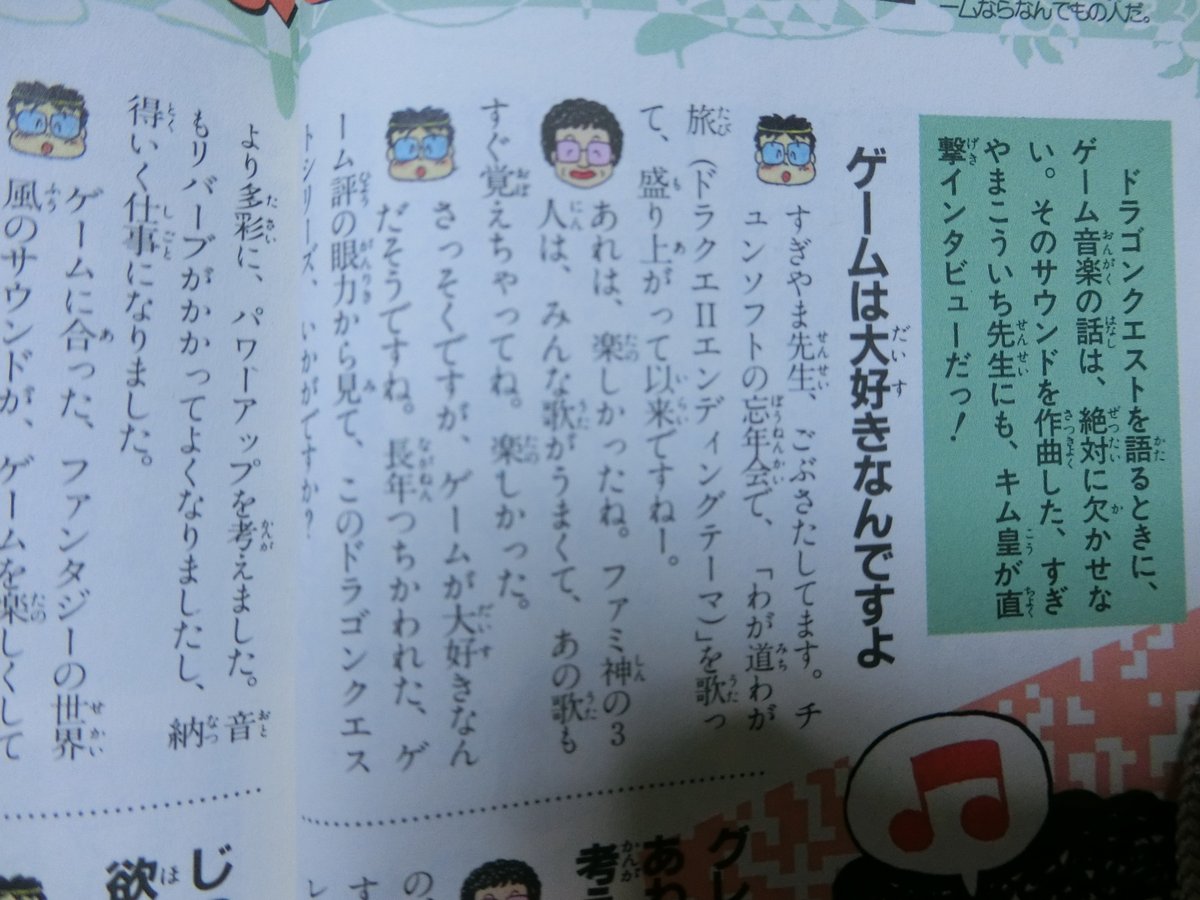 ームならなんでもの人だ。
ドラゴンクエストを語るときに、
ゲーム音楽の話は、絶対に欠かせな
い。そのサウンドを作曲した、すぎ
やまこういち先生にも、キム皇が直
撃インタビューだっ！
ゲームは大好きなんですよ
すぎやま先生、ごぶさたしてます。チ
ュンソフトの忘年会で、「わが道わが
旅（ドラクエⅡエンディングテーマ）」を歌っ
て、盛り上がって以来ですねー。
あれは、楽しかったね。ファミ神の3
人は、みんな歌がうまくて、あの歌も
すぐ覚えちゃってね。楽しかった。
さっそくですが、ゲームが大好きなん
だそうですね。長年つちかわれた、ゲ
ーム評の眼力から見て、このドラゴンクエス
トシリーズ、いかがですか？
より多彩に、パワーアップを考えました。音
もリバーブがかかってよくなりましたし、納
得いく仕事になりました。
ゲームに合った、ファンタジーの世界
風のサウンドが、ゲームを楽しくして
グレ
あわ
考え
の
す
レ
じっ
欲